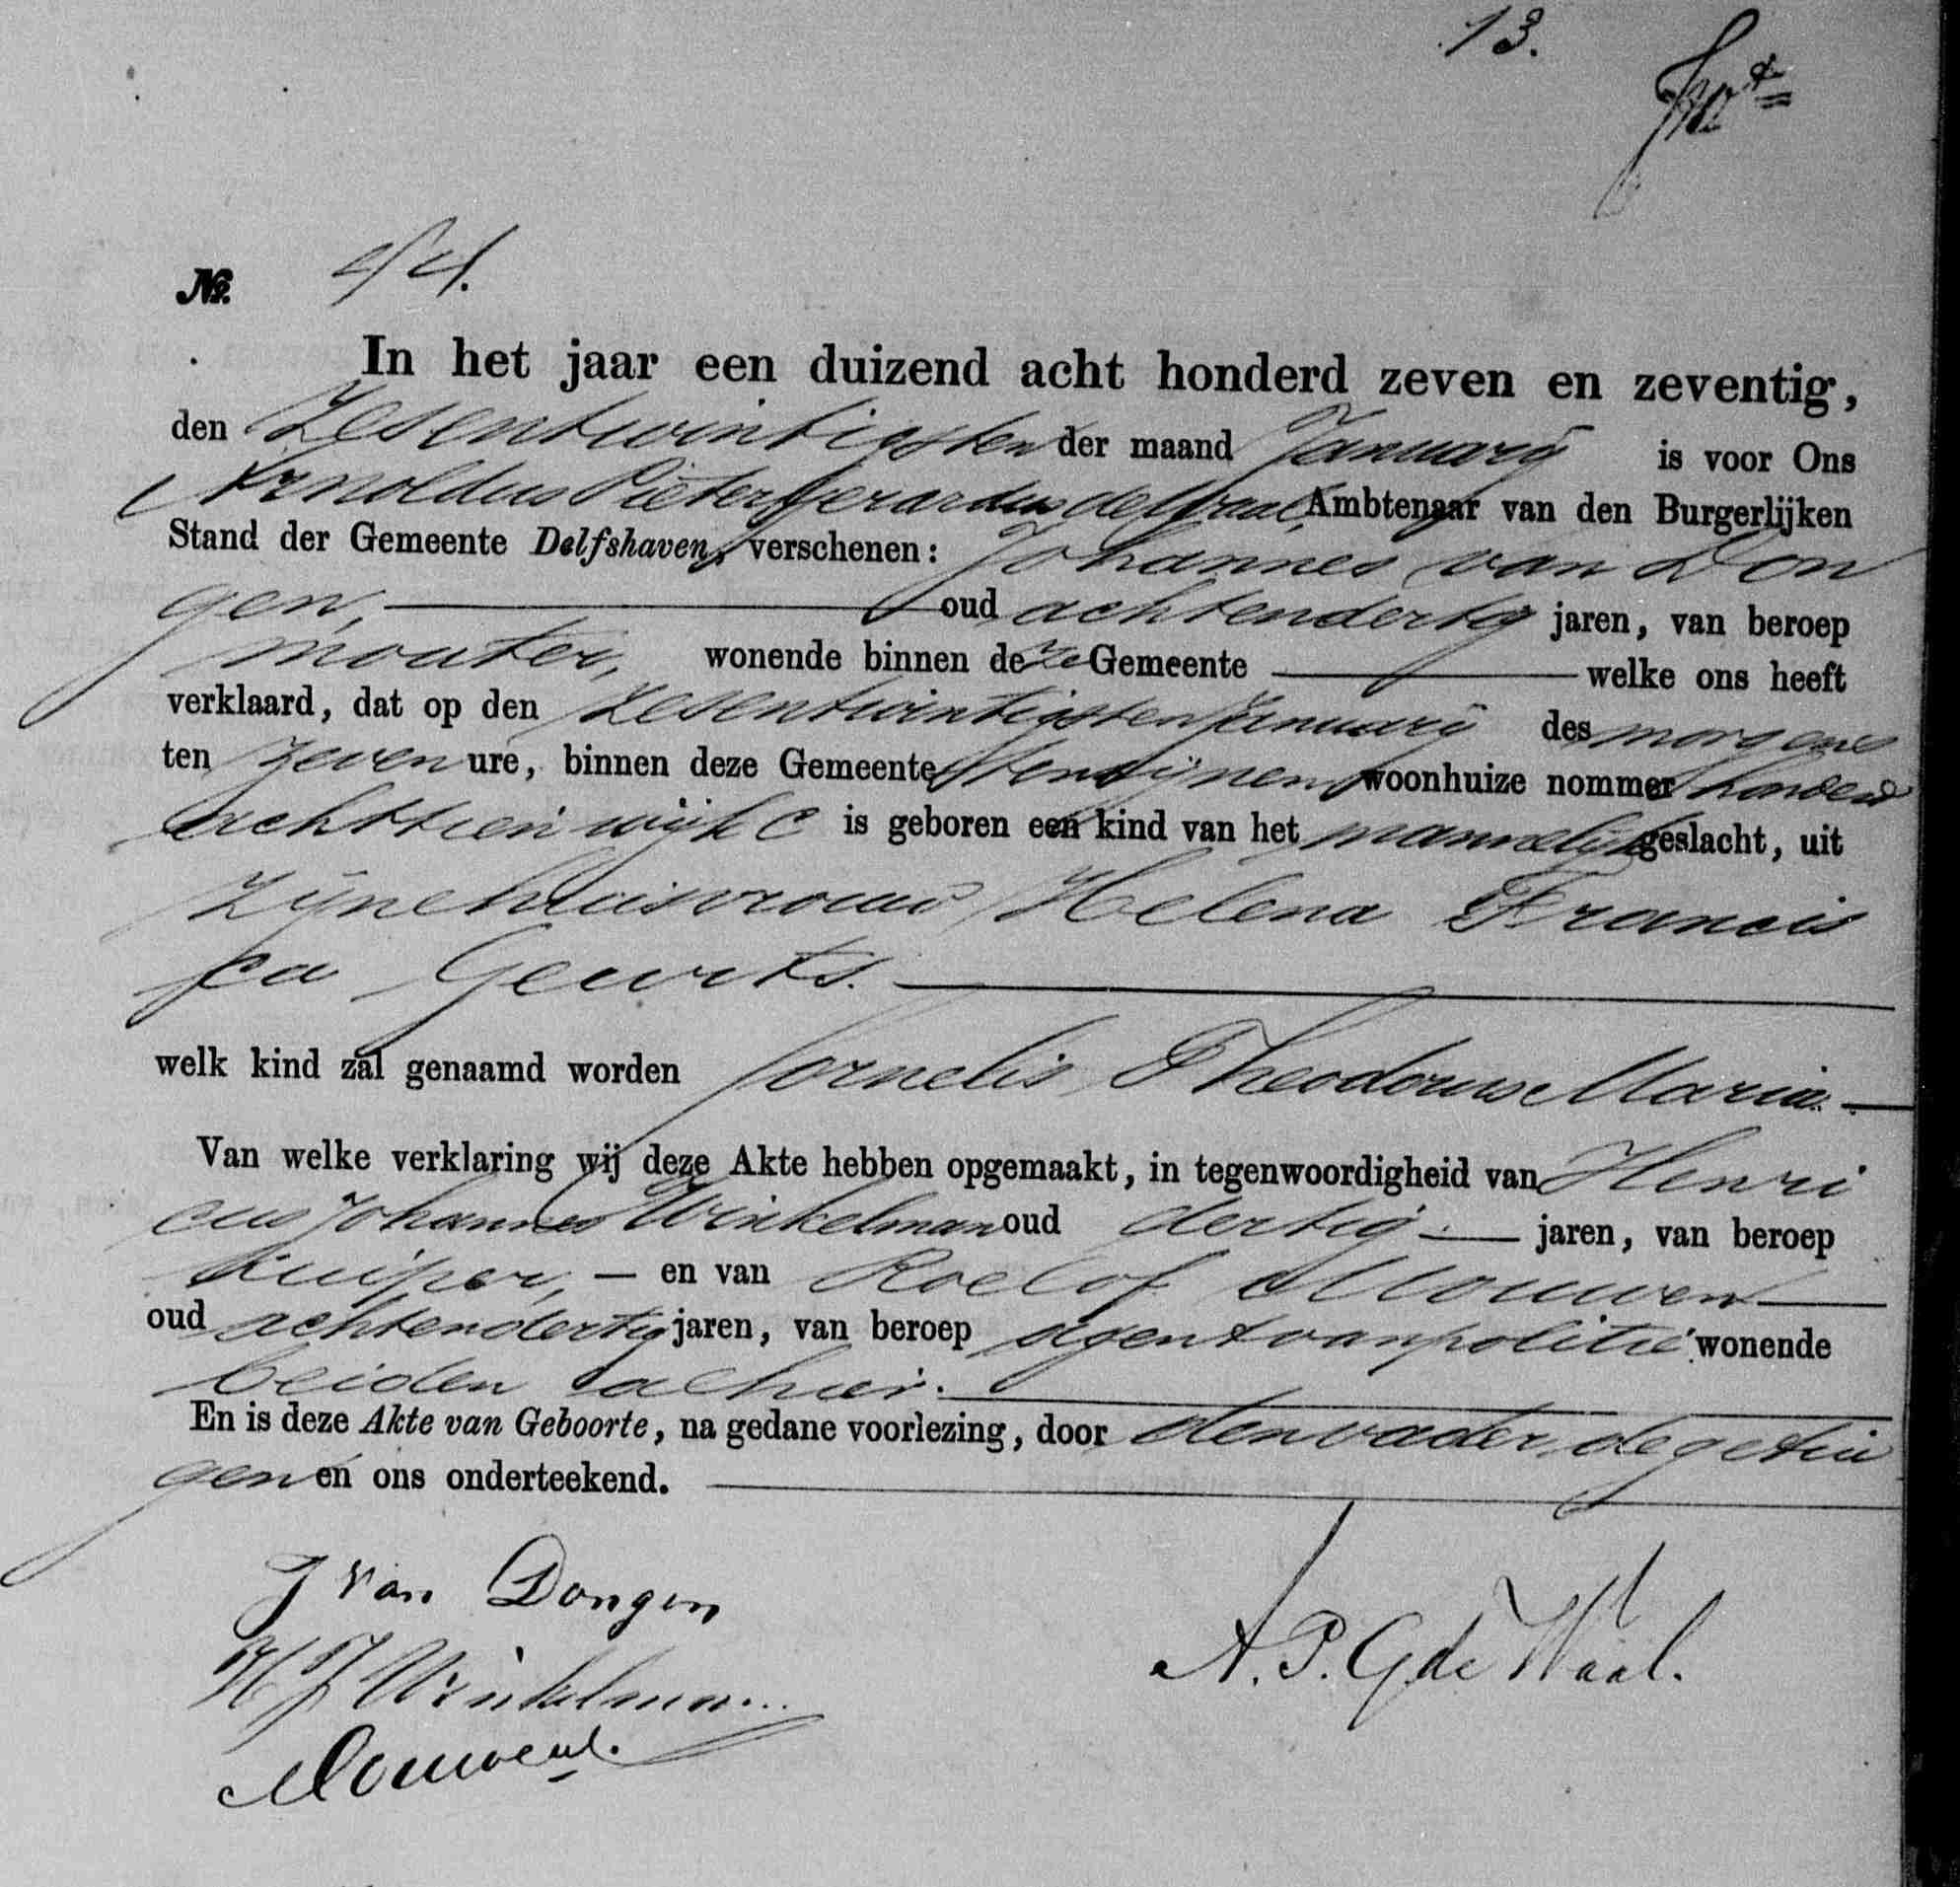 13.
No. 44.
In het jaar een duizend acht honderd zeven en zeventig,
den Zesentwintigsten der maand Januarij is voor Ons
Arnoldus Pieter Gerardus de Waal, Ambtenaar van den Burgerlijken
Stand der Gemeente Delfshaven, verschenen: Johannes van Don
gen, oud achtendertig jaren, van beroep
mouter, wonende binnen deze Gemeente welke ons heeft
verklaard, dat op den Zesentwintigsten Januarij des morgens
ten zeven ure, binnen deze Gemeente ten zijnen woonhuize nommer honderd
achttien wijk C is geboren een kind van het mannelijk geslacht, uit
zijne huisvrouw Helena Francis
ca Geurts.
welk kind zal genaamd worden Cornelis Theodorus Maria.
Van welke verklaring wij deze Akte hebben opgemaakt, in tegenwoordigheid van Henri
cus Johannes Winkelman oud dertig jaren, van beroep
kuiper, en van Roelof Mouwen
oud achtendertig jaren, van beroep agent van politie wonende
beiden alhier.
En is deze Akte van Geboorte, na gedane voorlezing, door den vader, de getui
gen en ons onderteekend.
J van Dongen
H J Winkelman
A. P. G de Waal.
Mouwen.